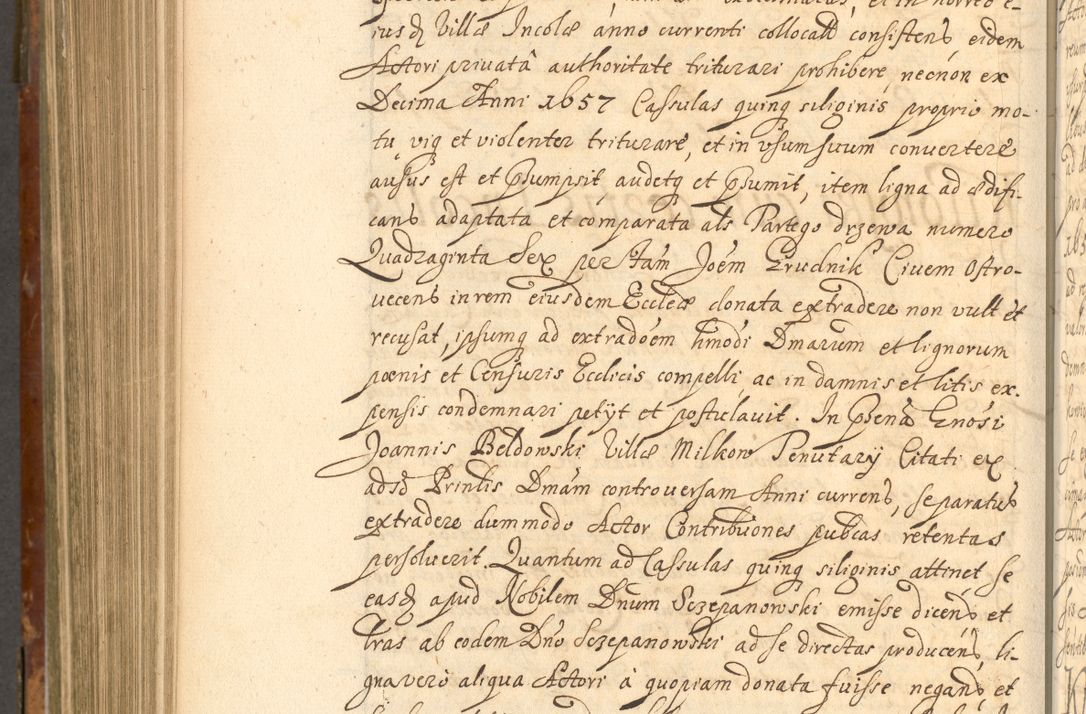 iusdꝫ Villæ Incolæ anno currenti collocatū consistens, eidem
Actori privatâ authoritate triturari prohibere, necnon ex
Decima Anni 1657 Cassulas quinq siliginis proprio mo-
tu, viq et violenter triturare, et in vsum suum conuertere
ausus est et psumpsit, audetq et psumit, item ligna ad ædifi-
cans adaptata et comparata als Partego drzewa numero
Quadraginta Sex per Fam Joem Grudnik Ciuem Ostro-
uecens in rem eiusdem Ecclæ donata extradere non vult et
recusat, ipsumq ad extradōem hmōdi Dmarum et lignorum
pœnis et Censuris Ecclicis compelli, ac in damnis et litis ex-
pensis condemnari petijt et postulauit. In psenâ Gnosi
Joannis Beldowski Villæ Milkow Tenutarÿ Citati ex
adsd Prinlis Dmam controversam Anni currens, se paratus
extradere dummodo Actor Contribuones pubcas retentas
persoluerit. Quantum ad Cassulas quinq siliginis attinet se
easdꝫ apud Nobilem Dnum Sczepanowski emisse dicens et
lras ab eodem Dno Sczepanowski ad se directas producens, li-
gna verò aliqua Actori à quopiam donata fuisse negans et